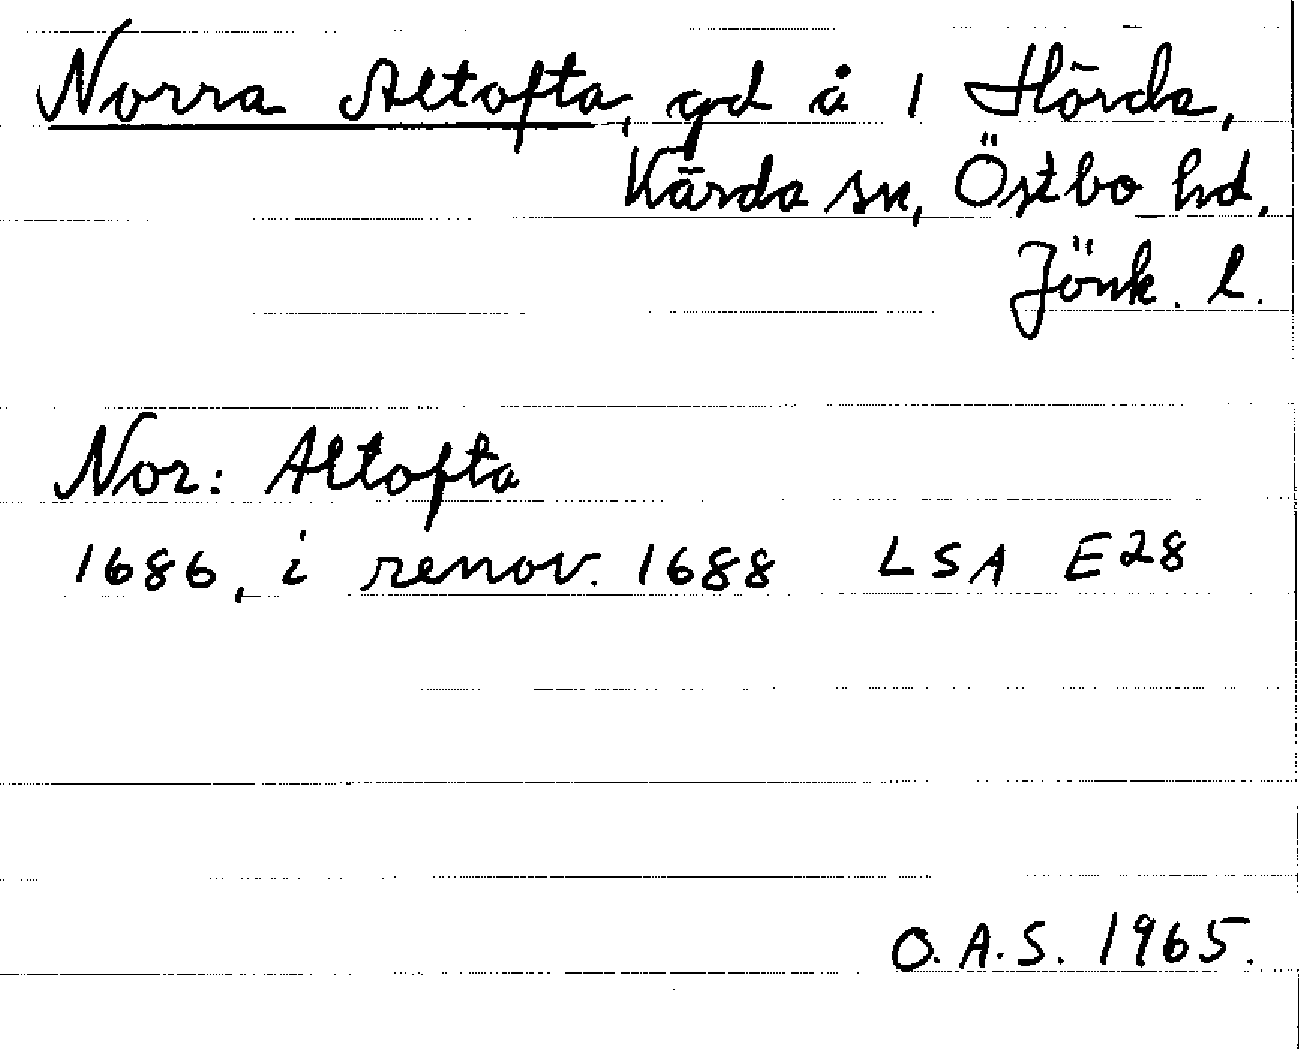 Norra Altofta, gd å 1 Hörda,
Kärda sn, Östbo hd,
Jönk. l.
Nor: Altofta
1686, i renov. 1688 LSA E28
O.A.S. 1965.